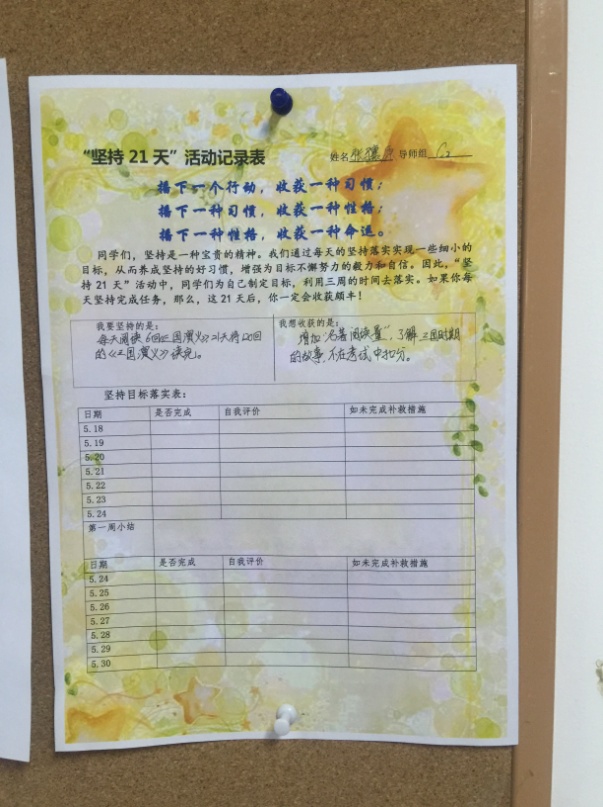 “坚持 21 天”活动记录表
姓名 张 导师组
播下一个行动，收获一种习惯；
播下一种习惯，收获一种性格；
播下一种性格，收获一种命运。
同学们，坚持是一种宝贵的精神。我们通过每天的坚持落实实现一些细小的
目标，从而养成坚持的好习惯，增强为目标不懈努力的毅力和自信。因此，“坚
持 21 天”活动中，同学们为自己制定目标，利用三周的时间去落实。如果你每
天坚持完成任务，那么，这 21 天后，你一定会收获颇丰！
我要坚持的是：
每天阅读6回《三国演义》21天将120回
的《三国演义》读完。
我想收获的是：
增加“名著阅读量”，了解三国时期
的故事，不在考试中扣分。
坚持目标落实表：
日期 是否完成 自我评价 如未完成补救措施
5.18
5.19
5.20
5.21
5.22
5.23
5.24
第一周小结
日期 是否完成 自我评价 如未完成补救措施
5.24
5.25
5.26
5.27
5.28
5.29
5.30